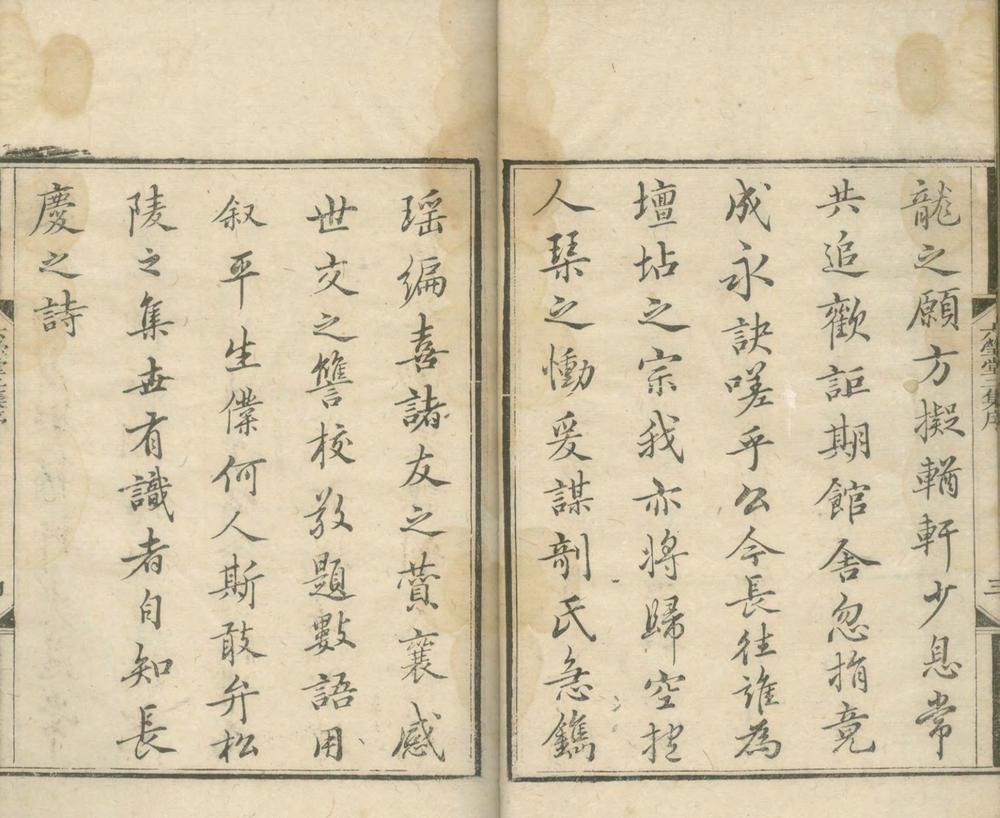 六瑩堂二集序
三
龍之願方擬輶軒少息常
共追歡詎期館舍忽捐竟
成永訣嗟乎公今長往誰為
壇坫之宗我亦將歸空抱
人琹之慟爰謀剞氏急鐫
瑶編喜諸友之賛襄感
世交之讐校敬題數語用
叙平生僕何人斯敢弁松
陵之集世有識者自知長
慶之詩